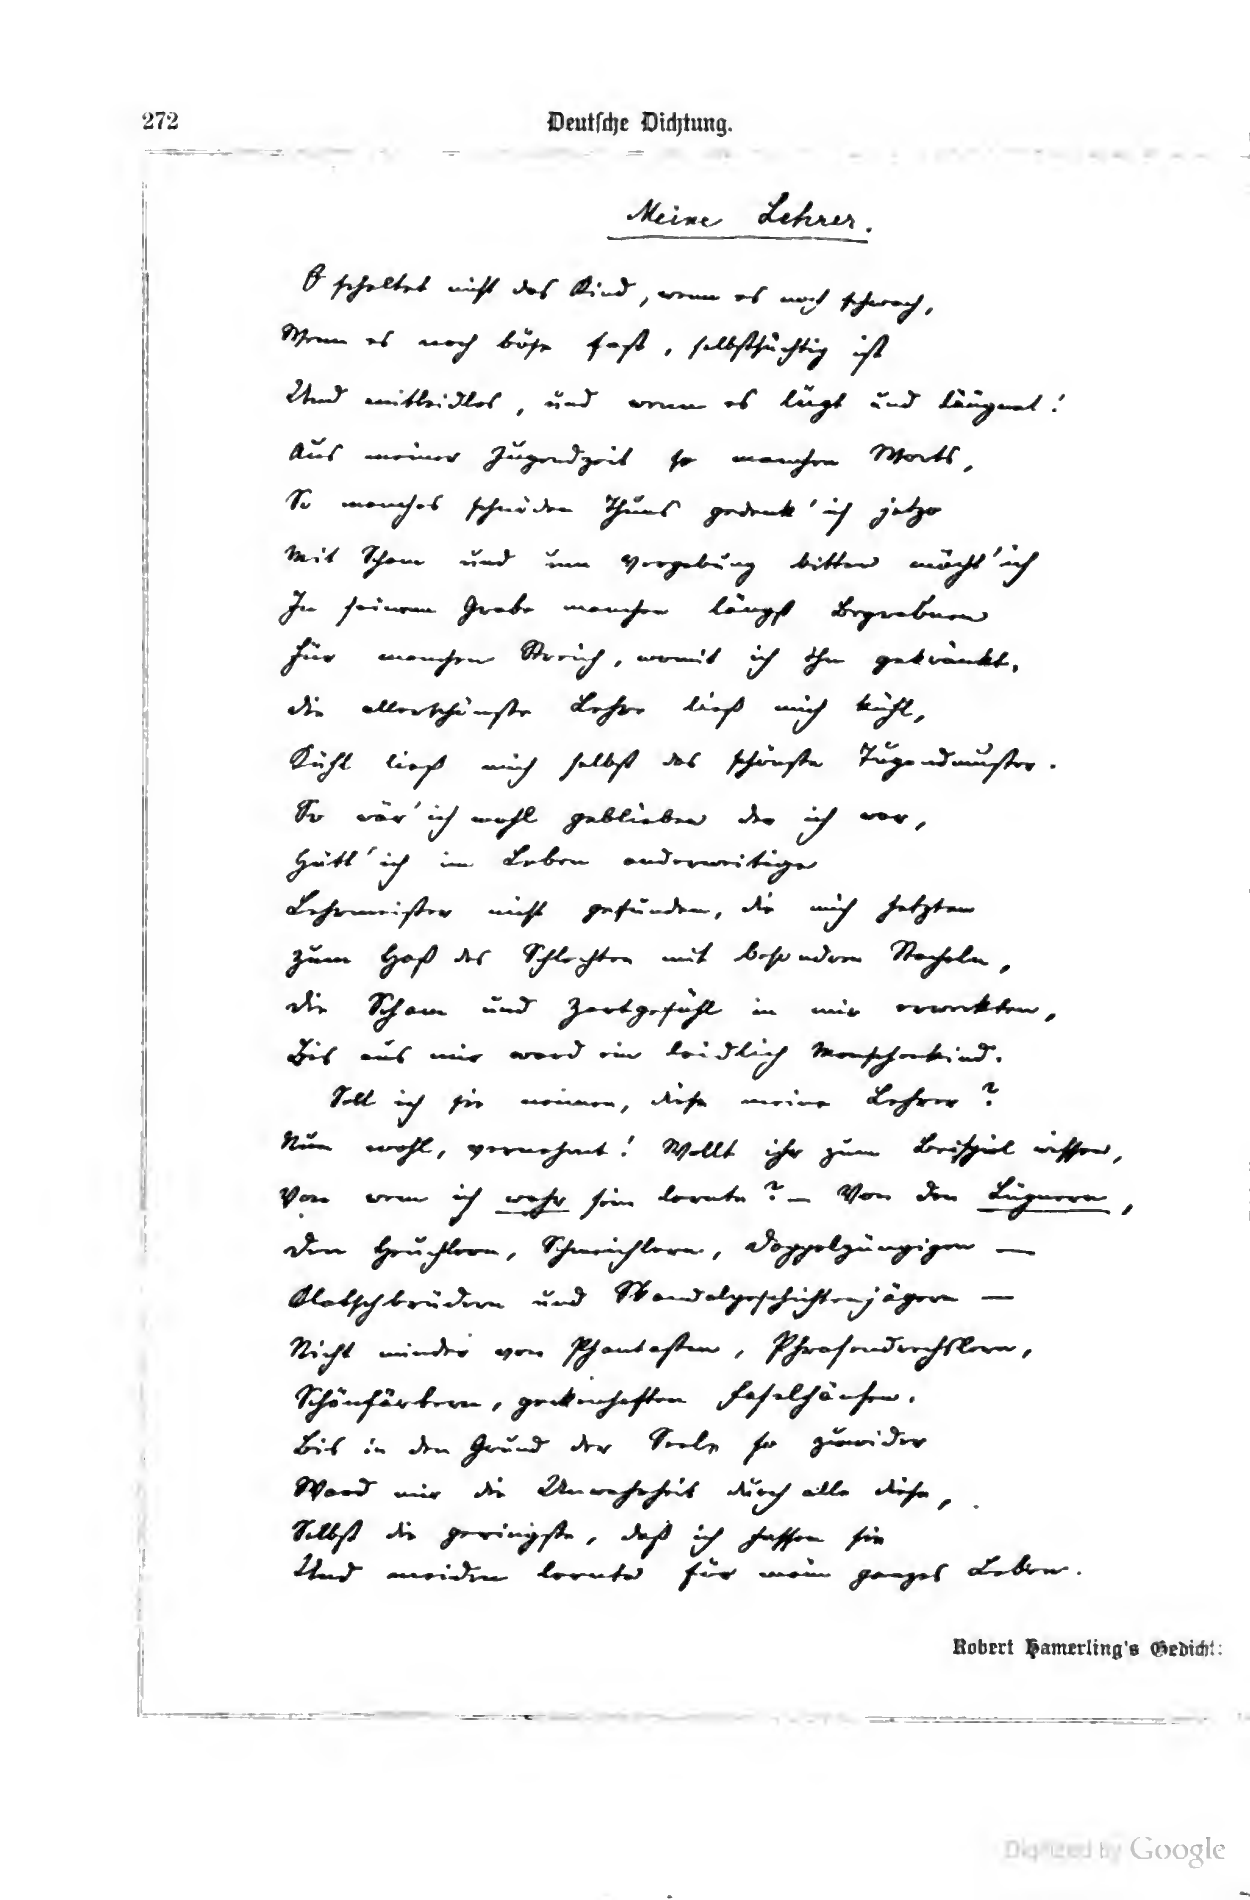 272
Deutsche Dichtung.
Meine Lehrer.
O scheltet nicht das Kind, wenn es noch schwach,
Wenn es noch böse fast, selbstsüchtig ist
Und mitleidlos, und wenn es lügt und läugnet!
Aus meiner Jugendzeit so manchen Worts,
So manches schnöden Thuns gedenk' ich jetzo
Mit Scham und um Vergebung bitten möcht' ich
In seinem Grabe manchen längst Begrabnen
Für manchen Streich, womit ich ihn gekränkt.
Die allerschönste Lehre ließ mich kühl,
Kühl ließ mich selbst das schönste Tugendmuster.
So wär' ich wohl geblieben der ich war,
Hätt' ich im Leben anderweitige
Lehrmeister nicht gefunden, die mich hetzten
Zum Haß des Schlechten mit besondern Stacheln,
Die Scham und Zartgefühl in mir erweckten,
Bis aus mir ward ein leidlich Menschenkind.
Soll ich sie nennen, diese meine Lehrer?
Nun wohl, vernehmt! Wollt ihr zum Beispiel wissen,
Von wem ich wahr sein lernte? — Von den Lügnern,
Den Heuchlern, Schmeichlern, Doppelzüngigen —
Klatschbrüdern und Skandalgeschichtenjägern —
Nicht minder von Phantasten, Phrasendrechslern,
Schönfärbern, geckenhaften Faselhänsen.
Bis in den Grund der Seele so zuwider
Ward mir die Unwahrheit durch alle diese,
Selbst die geringste, daß ich hassen sie
Und meiden lernte für mein ganzes Leben.
Robert Hamerling's Gedicht:
Digitized by Google